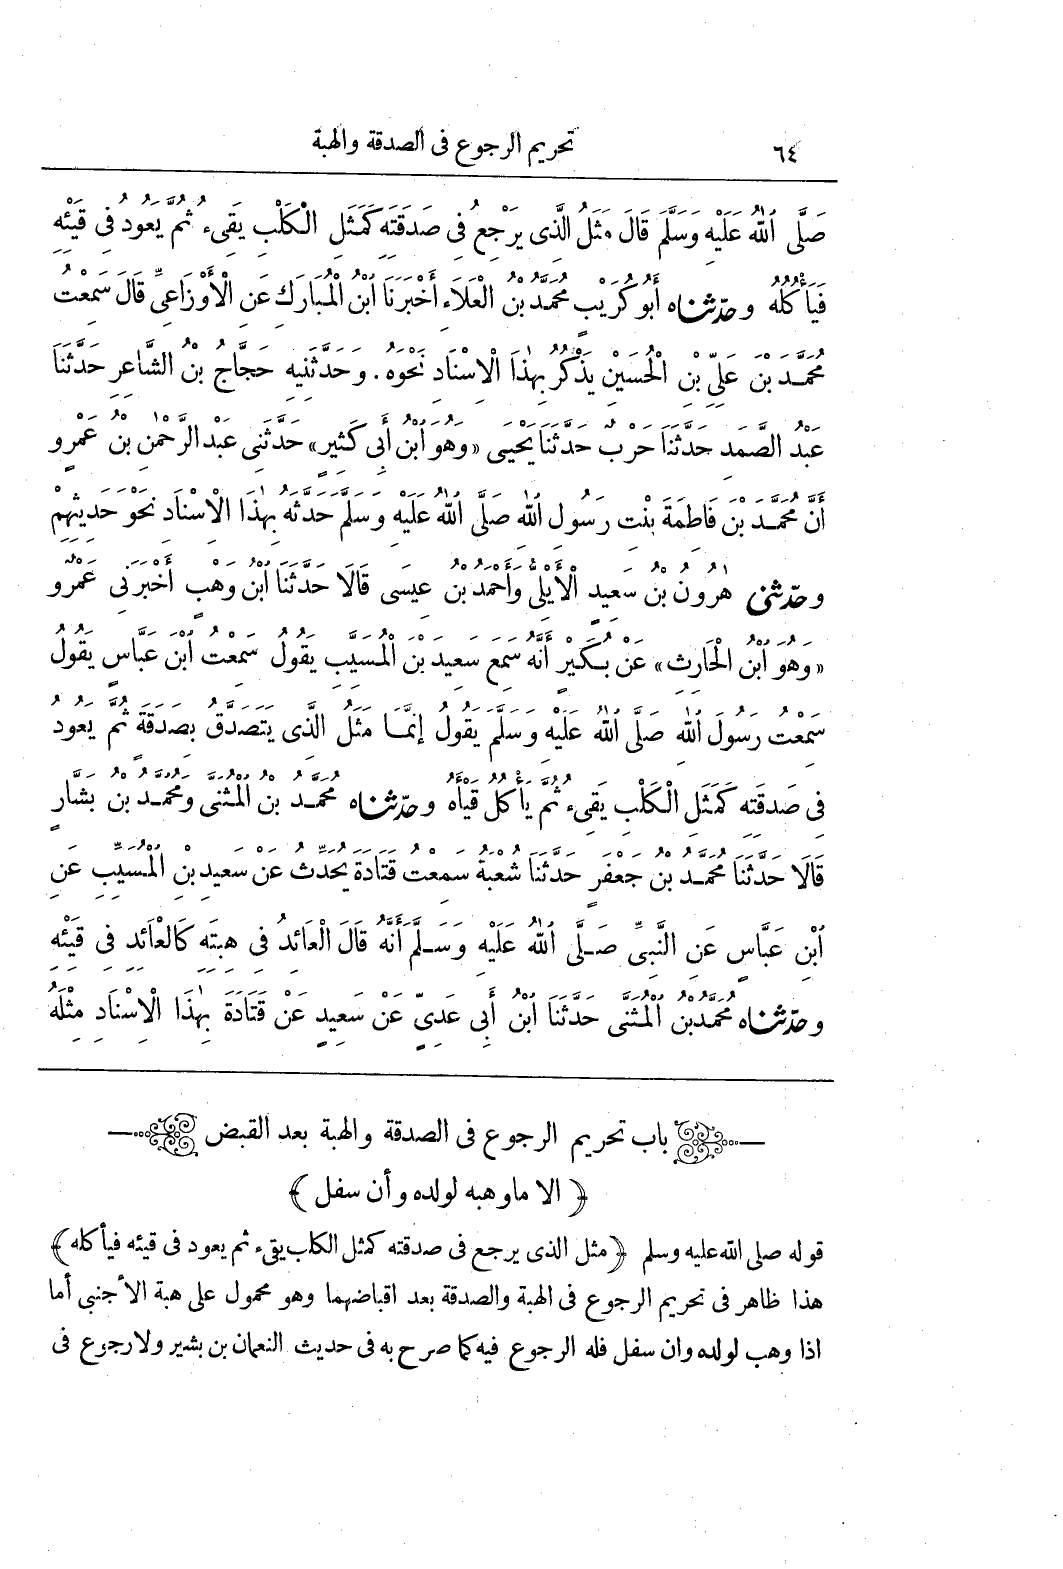 ٦٤ تحريم الرجوع فى الصدقة والهبة
صَلَّى ٱللهُ عَلَيْهِ وَسَلَّمَ قَالَ مَثَلُ الَّذِى يَرْجِعُ فِى صَدَقَتِهِ كَمَثَلِ الْكَلْبِ يَقِىءُ ثُمَّ يَعُودُ فِى قَيْئِهِ
فَيَأْكُلُهُ وحَدَّثَنَاه أَبُو كُرَيْبٍ مُحَمَّدُ بْنُ الْعَلَاءِ أَخْبَرَنَا ٱبْنُ الْمُبَارَكِ عَنِ الْأَوْزَاعِىِّ قَالَ سَمِعْتُ
مُحَمَّدَ بْنَ عَلِىِّ بْنِ الْحُسَيْنِ يَذْكُرُ بِهٰذَا الْاِسْنَادِ نَحْوَهُ . وَحَدَّثَنِيهِ حَجَّاجُ بْنُ الشَّاعِرِ حَدَّثَنَا
عَبْدُ الصَّمَدِ حَدَّثَنَا حَرْبٌ حَدَّثَنَا يَحْيَى «وَهُوَ ٱبْنُ أَبِى كَثِيرٍ» حَدَّثَنِى عَبْدُ الرَّحْمٰنِ بْنُ عَمْرٍو
أَنَّ مُحَمَّدَ بْنَ فَاطِمَةَ بِنْتِ رَسُولِ ٱللهِ صَلَّى ٱللهُ عَلَيْهِ وَسَلَّمَ حَدَّثَهُ بِهٰذَا الْاِسْنَادِ نَحْوَ حَدِيثِهِمْ
وحَدَّثَنِى هٰرُونُ بْنُ سَعِيدٍ الْأَيْلِىُّ وَأَحْمَدُ بْنُ عِيسَى قَالَا حَدَّثَنَا ٱبْنُ وَهْبٍ أَخْبَرَنِى عَمْرٌو
«وَهُوَ ٱبْنُ الْحَارِثِ» عَنْ بُكَيْرٍ أَنَّهُ سَمِعَ سَعِيدَ بْنَ الْمُسَيَّبِ يَقُولُ سَمِعْتُ ٱبْنَ عَبَّاسٍ يَقُولُ
سَمِعْتُ رَسُولَ ٱللهِ صَلَّى ٱللهُ عَلَيْهِ وَسَلَّمَ يَقُولُ إِنَّمَا مَثَلُ الَّذِى يَتَصَدَّقُ بِصَدَقَةٍ ثُمَّ يَعُودُ
فِى صَدَقَتِهِ كَمَثَلِ الْكَلْبِ يَقِىءُ ثُمَّ يَأْكُلُ قَيْأَهُ وحَدَّثَنَاه مُحَمَّدُ بْنُ الْمُثَنَّى وَمُحَمَّدُ بْنُ بَشَّارٍ
قَالَا حَدَّثَنَا مُحَمَّدُ بْنُ جَعْفَرٍ حَدَّثَنَا شُعْبَةُ سَمِعْتُ قَتَادَةَ يُحَدِّثُ عَنْ سَعِيدِ بْنِ الْمُسَيِّبِ عَنِ
ٱبْنِ عَبَّاسٍ عَنِ النَّبِىِّ صَلَّى ٱللهُ عَلَيْهِ وَسَلَّمَ أَنَّهُ قَالَ الْعَائِدُ فِى هِبَتِهِ كَالْعَائِدِ فِى قَيْئِهِ
وحَدَّثَنَاه مُحَمَّدُ بْنُ الْمُثَنَّى حَدَّثَنَا ٱبْنُ أَبِى عَدِىٍّ عَنْ سَعِيدٍ عَنْ قَتَادَةَ بِهٰذَا الْاِسْنَادِ مِثْلَهُ
باب تحريم الرجوع فى الصدقة والهبة بعد القبض
﴿ الا ماوهبه لولده وأن سفل ﴾
قوله صلى الله عليه وسلم ﴿ مثل الذى يرجع فى صدقته كمثل الكلب يقىء ثم يعود فى قيئه فيأكله ﴾
هذا ظاهر فى تحريم الرجوع فى الهبة والصدقة بعد اقباضهما وهو محمول على هبة الأجنبى أما
اذا وهب لولده وان سفل فله الرجوع فيه كما صرح به فى حديث النعمان بن بشير ولا رجوع فى